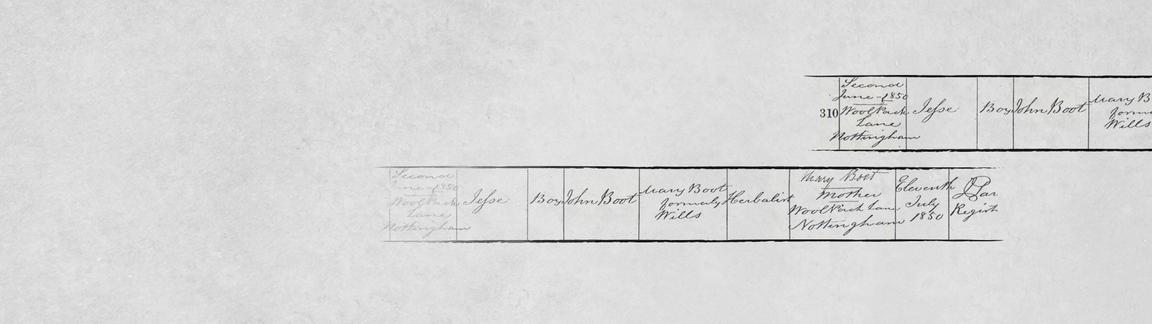 310
Second
June 1850
Woolpack
Lane
Nottingham
Jesse
Boy
John Boot
Mary B
formerly
Wills
Second
June 1850
Woolpack
Lane
Nottingham
Jesse
Boy
John Boot
Mary Boot
formerly
Wills
Herbalist
Mary Boot
Mother
Woolpack Lane
Nottingham
Eleventh
July
1850
Regist